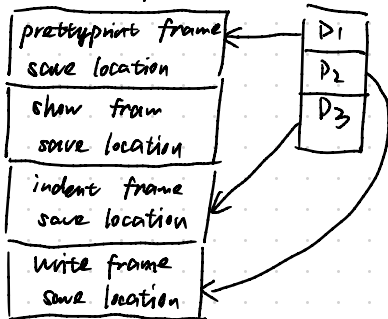 prettyprint frame
save location
show fram
save location
indent frame
save location
write frame
save location
D1
D2
D3